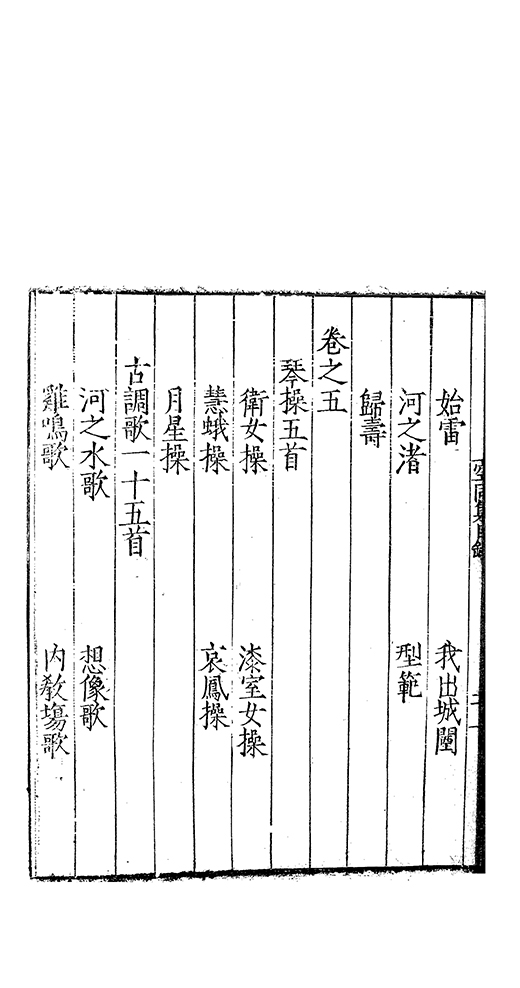 始雷　我出城闉
河之渚　型範
歸壽
卷之五
琴操五首
衛女操　漆室女操
慧蛾操　哀鳳操
月星操
古調歌一十五首
河之水歌　想像歌
雞鳴歌　內教場歌